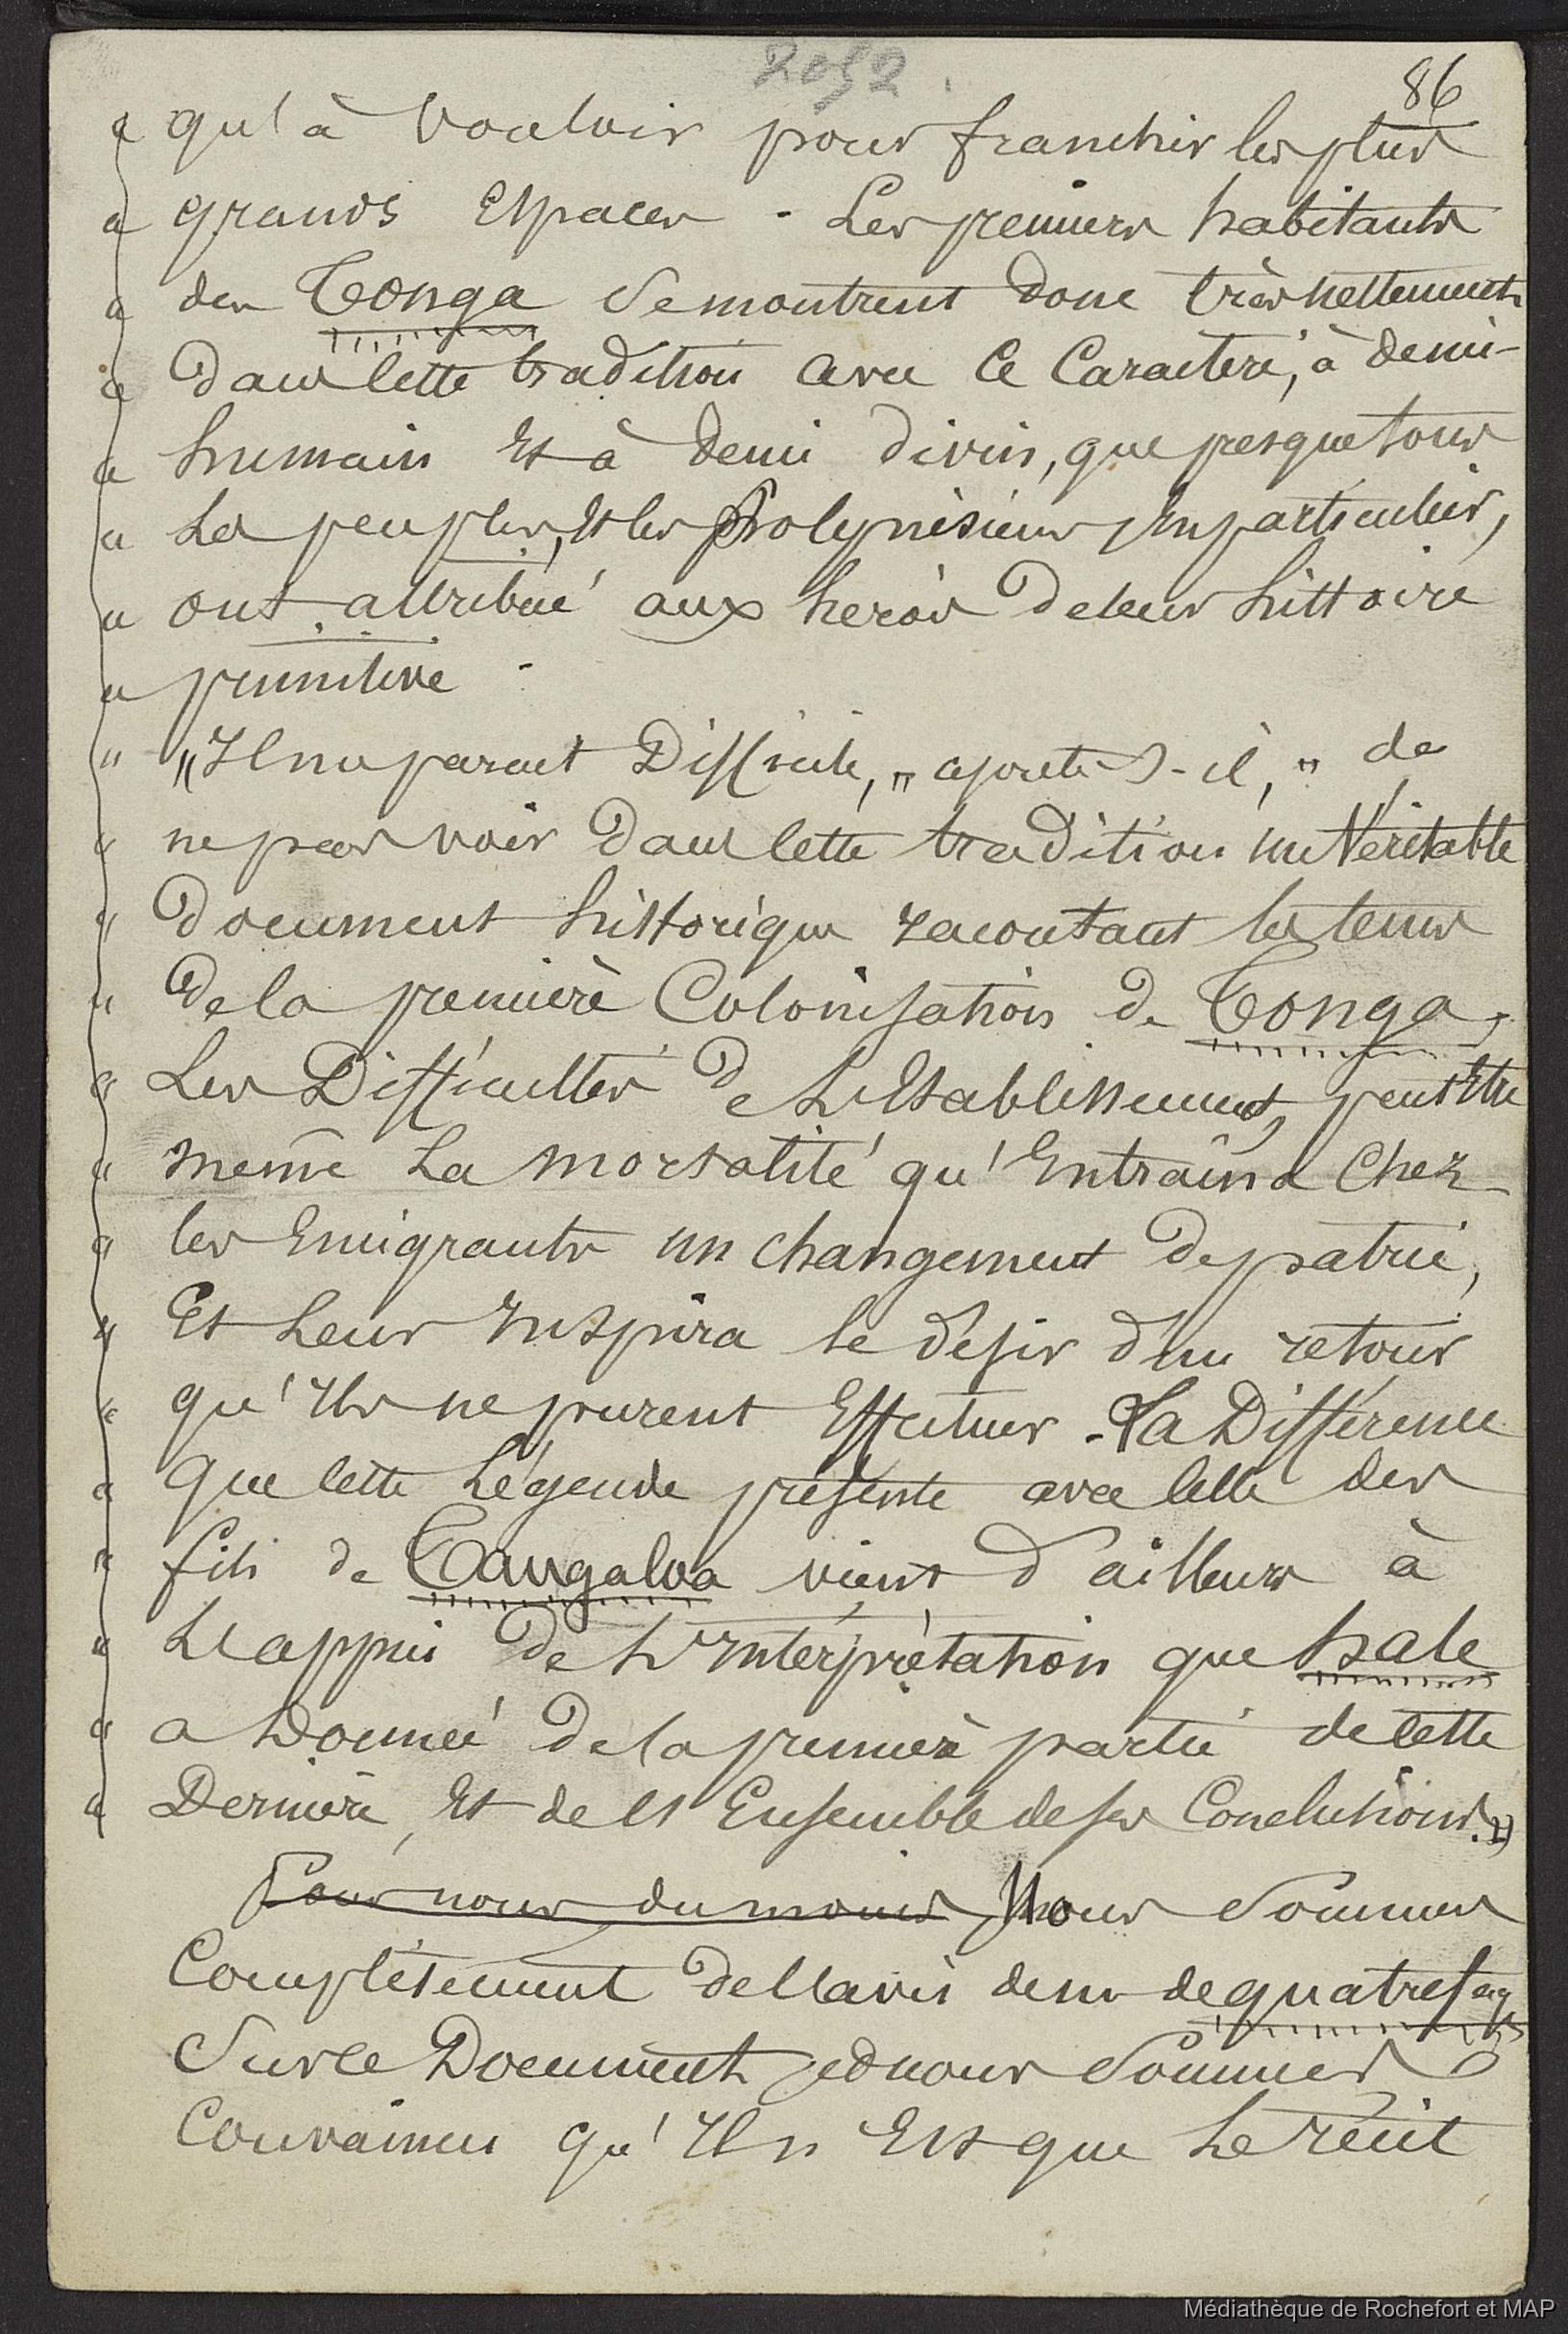 2052.
86
« qu'à vouloir pour franchir les plus
« grands Espaces - Les premiers habitants
« des Tonga se montrent donc très nettement
« dans cette tradition avec ce Caractère, à demi-
« humain Et à demi divin, que presque tous
« Les peuples, Et les Polynésiens En particulier,
« ont attribué aux heros de leur histoire
« primitive -
« "Il me parait Difficile," ajoute-t-il, " de
« ne pas voir dans cette tradition un Véritable
« document historique racontant les tems
« de la première Colonisation de Tonga,
« Les Difficultés de L'Etablissement, peut Etre
« même La mortalité qu'Entraîna Chez
« les Emigrants un changement de patrie,
« Et Leur Inspira le désir d'un retour
« qu'Ils ne purent Effectuer - La Différence
« Que cette Légende présente avec celle des
« fils de Tangaloa vient d'ailleurs à
« L'appui de L'Interprétation que hale
« a Donnée de la première partie de cette
« Dernière, Et de l'Ensemble de ses Conclusions. »
Pour nous du moins Nous Sommes
Complètement de l'avis de mr de quatrefages
Sur ce Document, et nous Sommes
Convaincu qu'Il n'Est que Le récit
Médiathèque de Rochefort et MAP